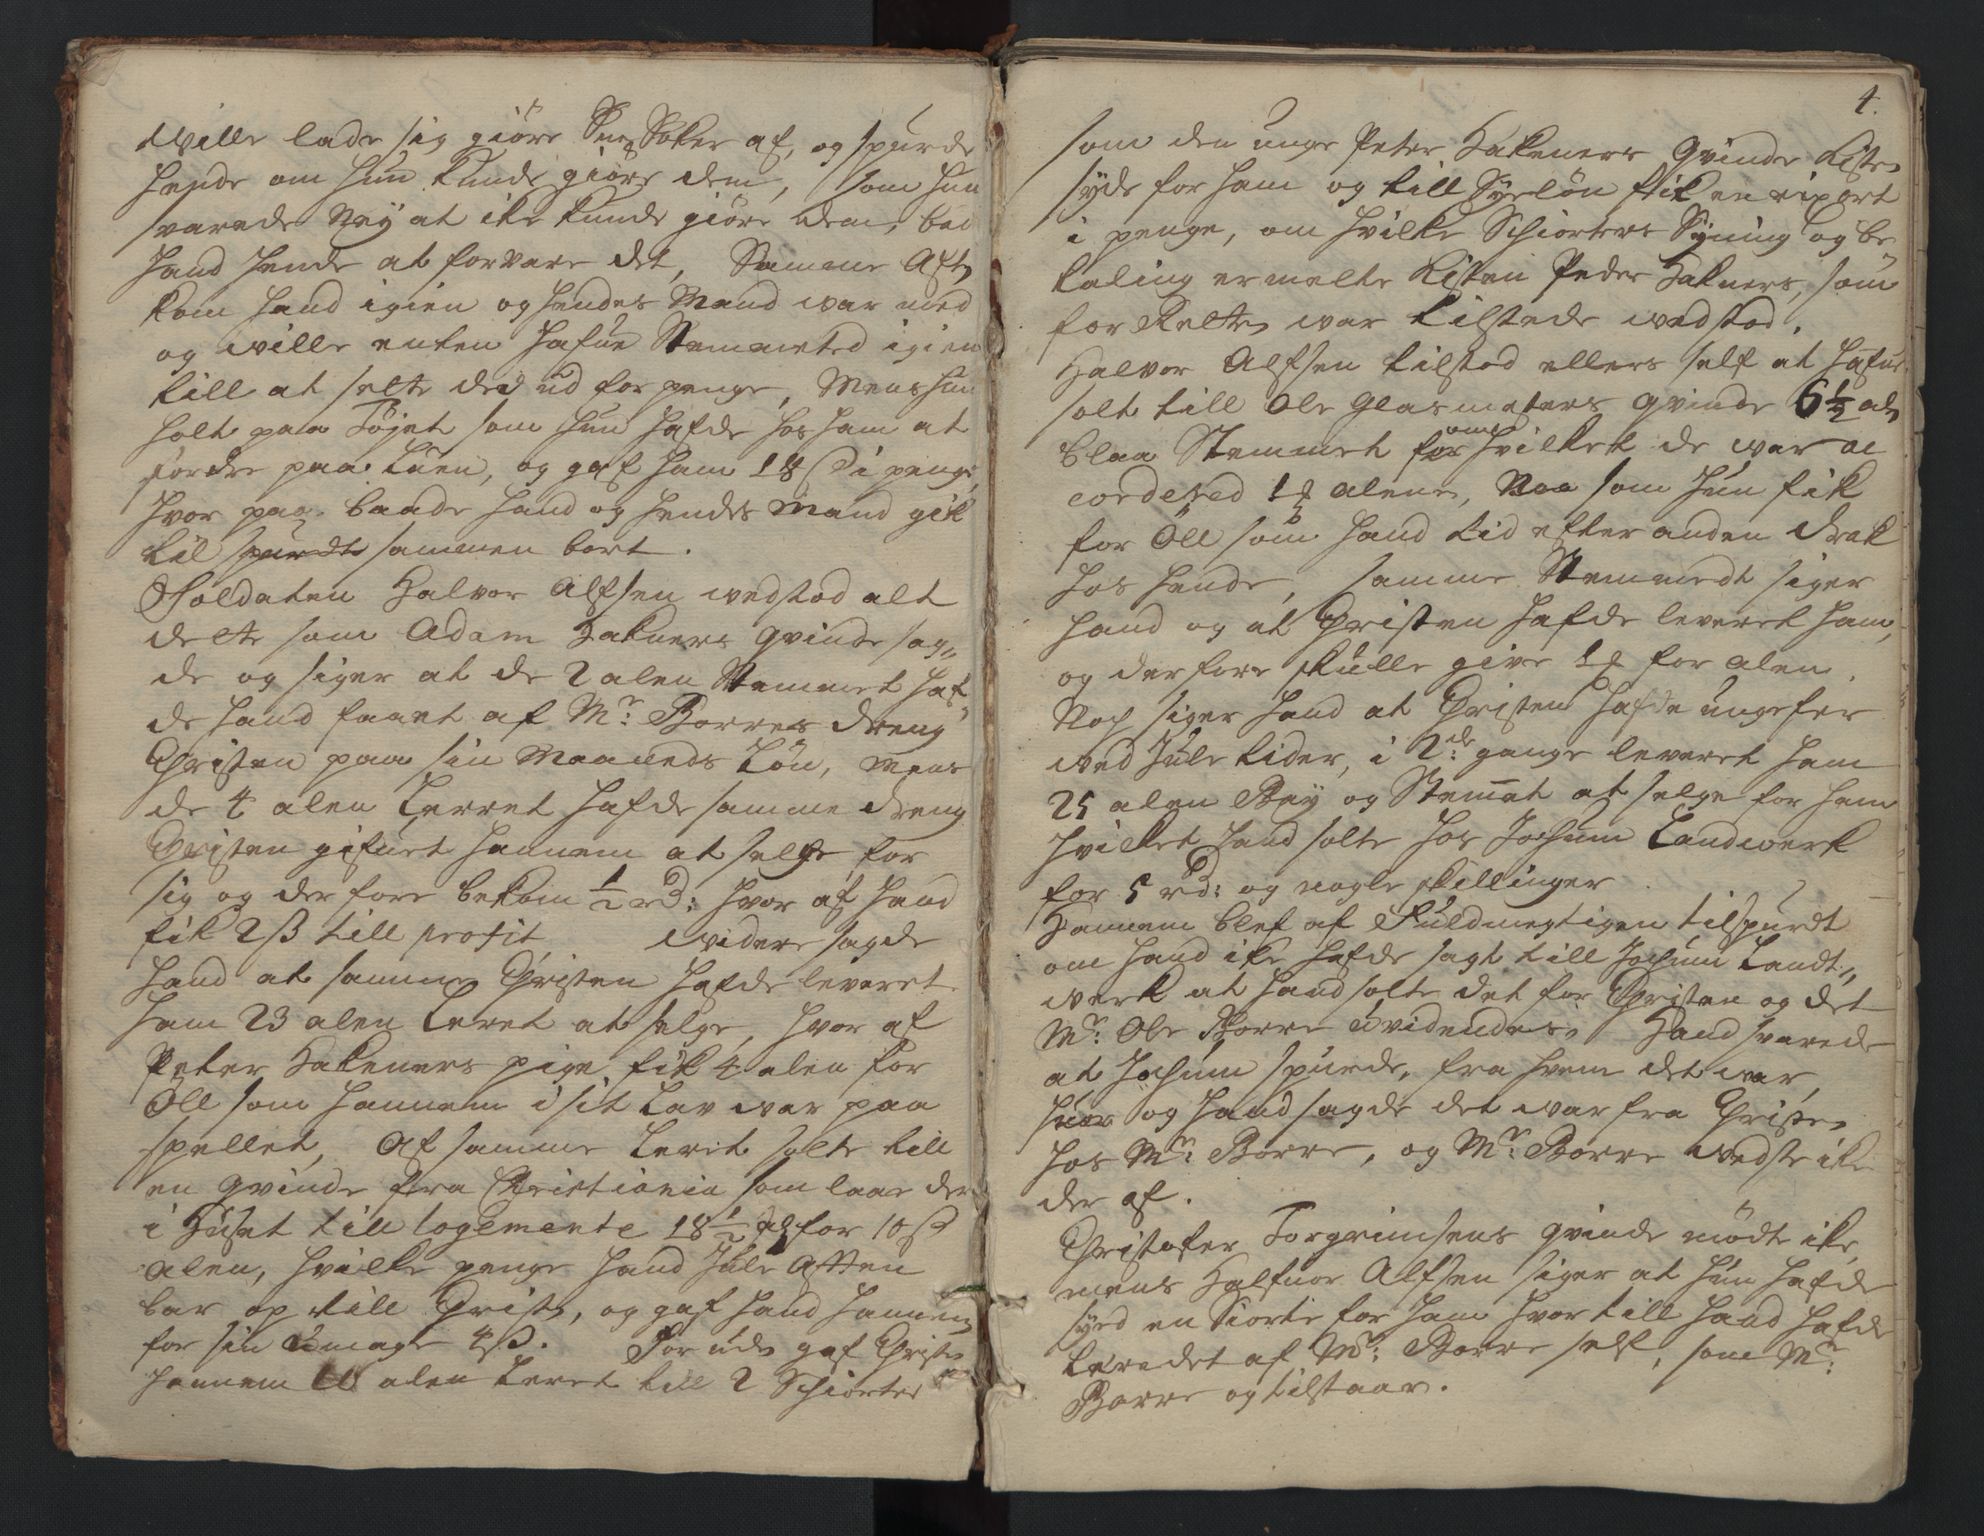 wille lade sig giöre Snesoker af, og spurde
hende om hun kunde giöre dem, som hun
svarede Ney at ike kunde giöre dem, bad
hand hende at forvare det, Samme Aften
kom hand igien og hendes Mand war med
og wille enten hafue Stemmeted igien
till at sette ded ud for penge, Mens hun
holt paa Töjet som hun hafde hos ham at
fordre paa Lüen, og gaf ham 18 ß i penge,
hvor paa baade hand og hendes Mand gik
til spurdt sammen bort.
Soldaten Halvor Alfsen wedstod alt
dette som Adam Hakners qvinde sag„
de og siger at de 2 alen Stemmet haf„
de hand faaet af Mr: Borres dreng
Christen paa sin Maaneds Lön, Mens
de 4 alen Lerret hafde samme dreng
Christen gifuet hannem at selge for
sig og der fore bekom 1/2 rd: hvor af hand
fik 2 ß till profit widere sagde
hand at samme Christen hafde leveret
ham 23 alen Leret at selge, hvor af
Peter Hakeners pige fik 4 alen for
Öll som hannem i sit Lav war paa
spellet, Af samme Leret solte till
en qvinde fra Christiania som laae der
i Huset till logemente 18 1/2 al for 10 ß
alen, hvilke penge hand Jule Aften
bar op till Christen, og gaf hand hannem
for sin Umage 4 ß. For uden gaf Christen
hannem alen Leret till 2 Schiorter
4.
som den unge Peter Hakeners Qvinde Listen
syde for ham og till Syelön fik en rixort
i penge, om hvilke Schiorters Syning og be
taling ermelte Listen Peder Hakners, som
for Retten war tilstede wedstod.
Halvor Alfsen tilstod ellers self at hafue
solt till Ole Glasmesters qvinde 6 1/2 alen
blaa Stemmet for om hvilket de war ac
cordered alenen, Noa som hun fik
for Öll som hand tid efter anden drak
hos hende, samme Stemmedt siger
hand og at Christen hafde leveret ham,
og derfore skulle give for alen.
Noch siger hand at Christen hafde ungefer
wed Jule tider, i 2de: gange leveret ham
25 alen Bay og Stemmet at selge for ham
hvilket hand solte hos Jochum Landwerk
for 5 rd: og nogle skillinger
Hannem blef af Fuldmegtigen tilspurdt
om hand ike hafde sagt till Jochum Landt„
werk at hand solte det for Christen og det
Mr: Ole Borre Uvidendes. Hand svarede
at Jochum spurde, fra hvem det war,
huor og hand sagde det war fra Christen
hos Mr: Borre, og Mr: Borre wedste ike
der af.
Christofer Torgrimsens qvinde mödte ike,
mens Halfuor Alfsen siger at hun hafde
syed en Siorte for ham hvor till hand hafde
Leredet af Mr: Borre self, som Mr:
Borre og tilstaar.